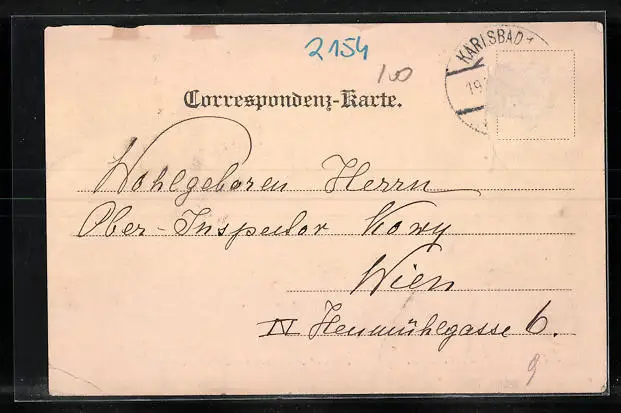 2154
100
KARLSBAD 1
19.
Correspondenz-Karte.
Wohlgeboren Herrn
Ober-Inspector Kowy
Wien
IV Heumühlgasse 6.
9